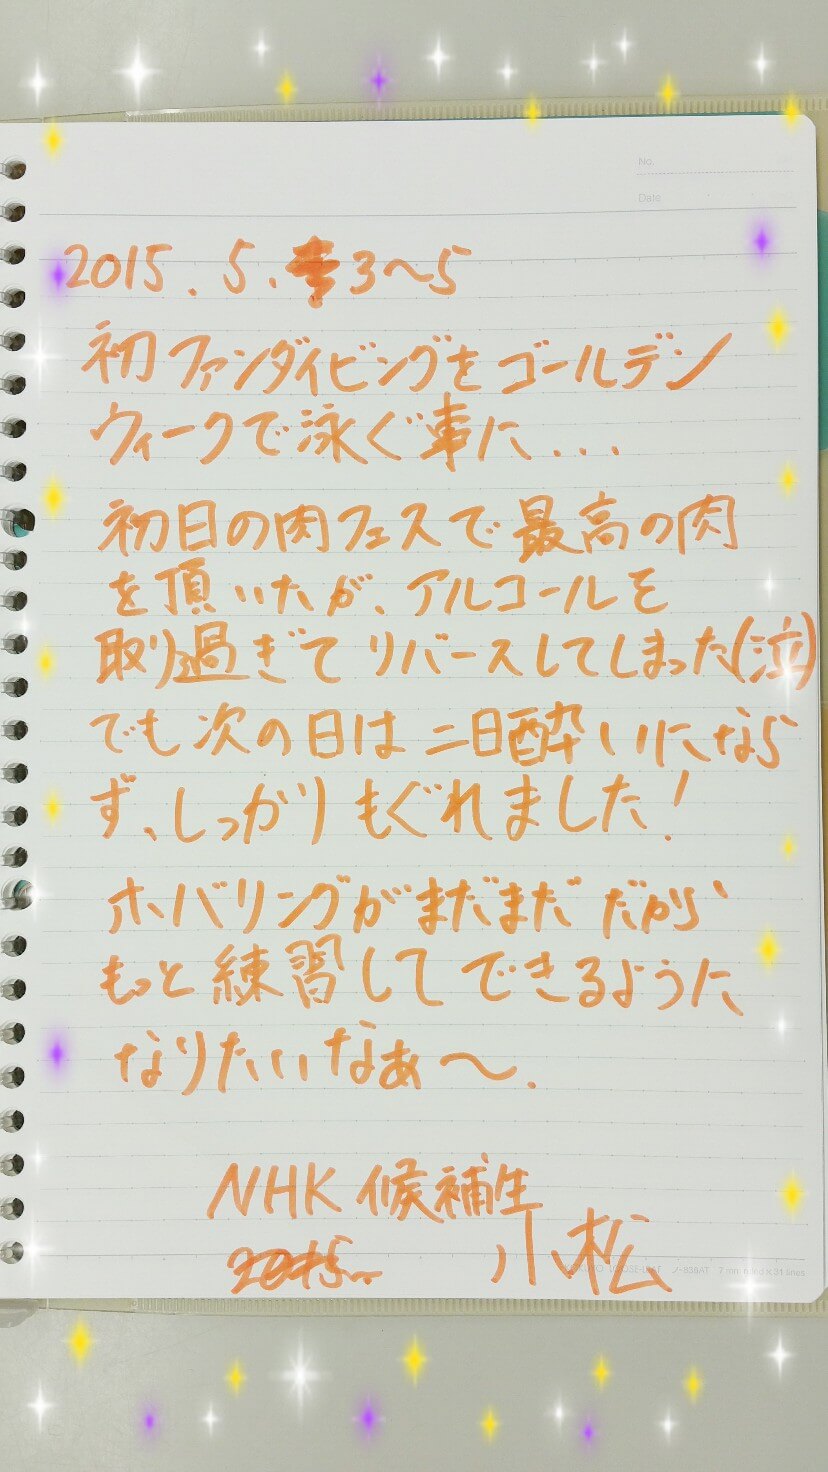 No.
Date
2015. 5. 3〜5
初ファンダイビングをゴールデン
ウィークで泳ぐ事に...
初日の肉フェスで最高の肉
を頂いたが、アルコールを
取り過ぎてリバースしてしまった(泣)
でも次の日は二日酔いになら
ず、しっかりもぐれました!
ホバリングがまだまだだから
もっと練習してできるように
なりたいなぁ〜.
NHK 候補生
小松
LOOSE-LEAF ノ-836AT 7 mm ruled×31 lines